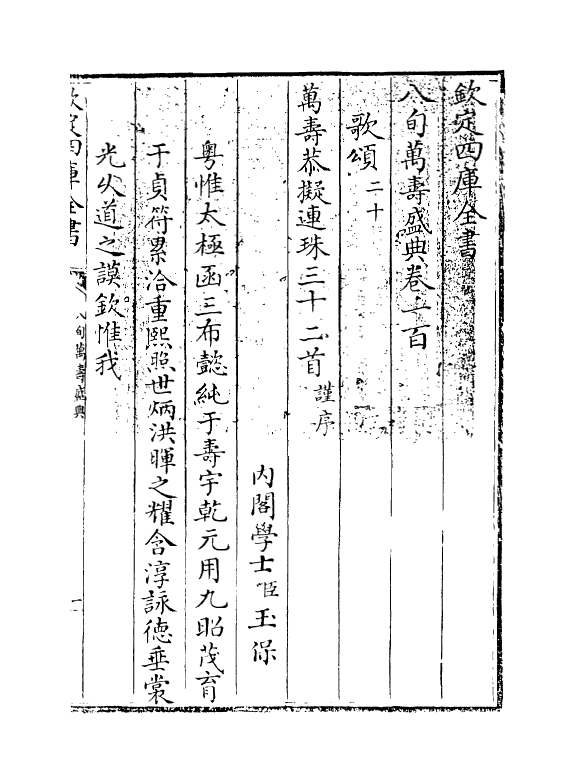 欽定四庫全書
八旬萬壽盛典卷一百
歌頌二十
萬壽恭擬連珠三十二首謹序
內閣學士臣玉保
粵惟太極函三布懿純于壽宇乾元用九昭茂育
于貞符累洽重熙照世炳洪暉之耀含淳詠德垂裳
光久道之謨欽惟我
欽定四庫全書
八旬萬壽盛典
一